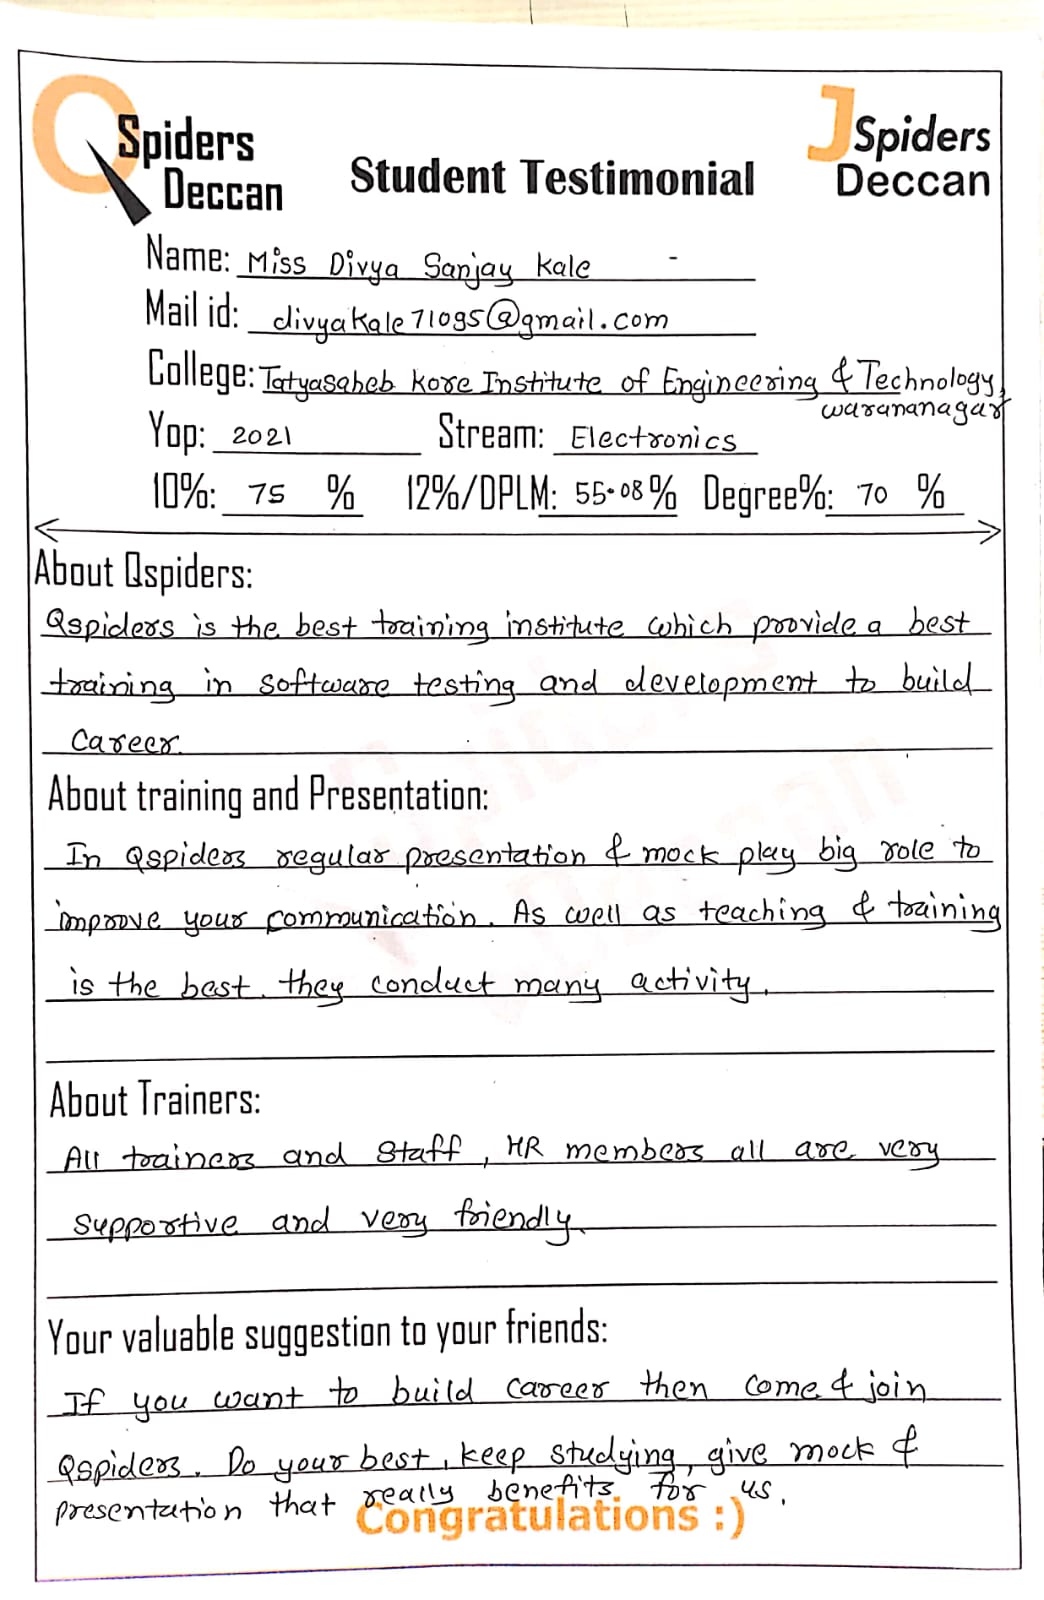 QSpiders
Deccan
JSpiders
Deccan
Student Testimonial
Name: Miss Divya Sanjay Kale
Mail id: divyakale71095@gmail.com
College: Tatyasaheb Kore Institute of Engineering & Technology,
Warananagar
Yop: 2021 Stream: Electronics
10%: 75 % 12%/DPLM: 55.08% Degree%: 70 %
About Qspiders:
Qspiders is the best training institute which provide a best
training in software testing and development to build
career.
About training and Presentation:
In Qspiders regular presentation & mock play big role to
improve your communication. As well as teaching & training
is the best. they conduct many activity.
About Trainers:
All trainers and Staff, HR members all are very
supportive and very friendly.
Your valuable suggestion to your friends:
If you want to build career then come & join
Qspiders. Do your best, keep studying, give mock &
presentation that really benefits for us.
Congratulations :)